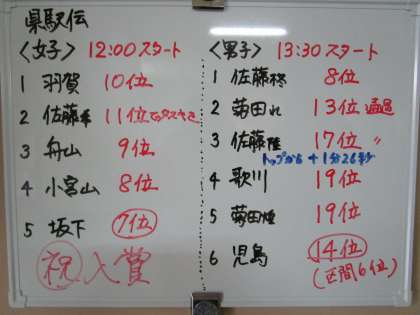 県駅伝
〈女子〉 12:00 スタート
1 羽賀 10位
2 佐藤 11位
3 舟山 9位
4 小宮山 8位
5 坂下 7位
祝 入賞
〈男子〉 13:30 スタート
1 佐藤柊 8位
2 菊田れ 13位 通過
3 佐藤 17位 〃
トップから +1分26秒
4 歌川 19位
5 菊田 19位
6 児島 14位
(区間6位)